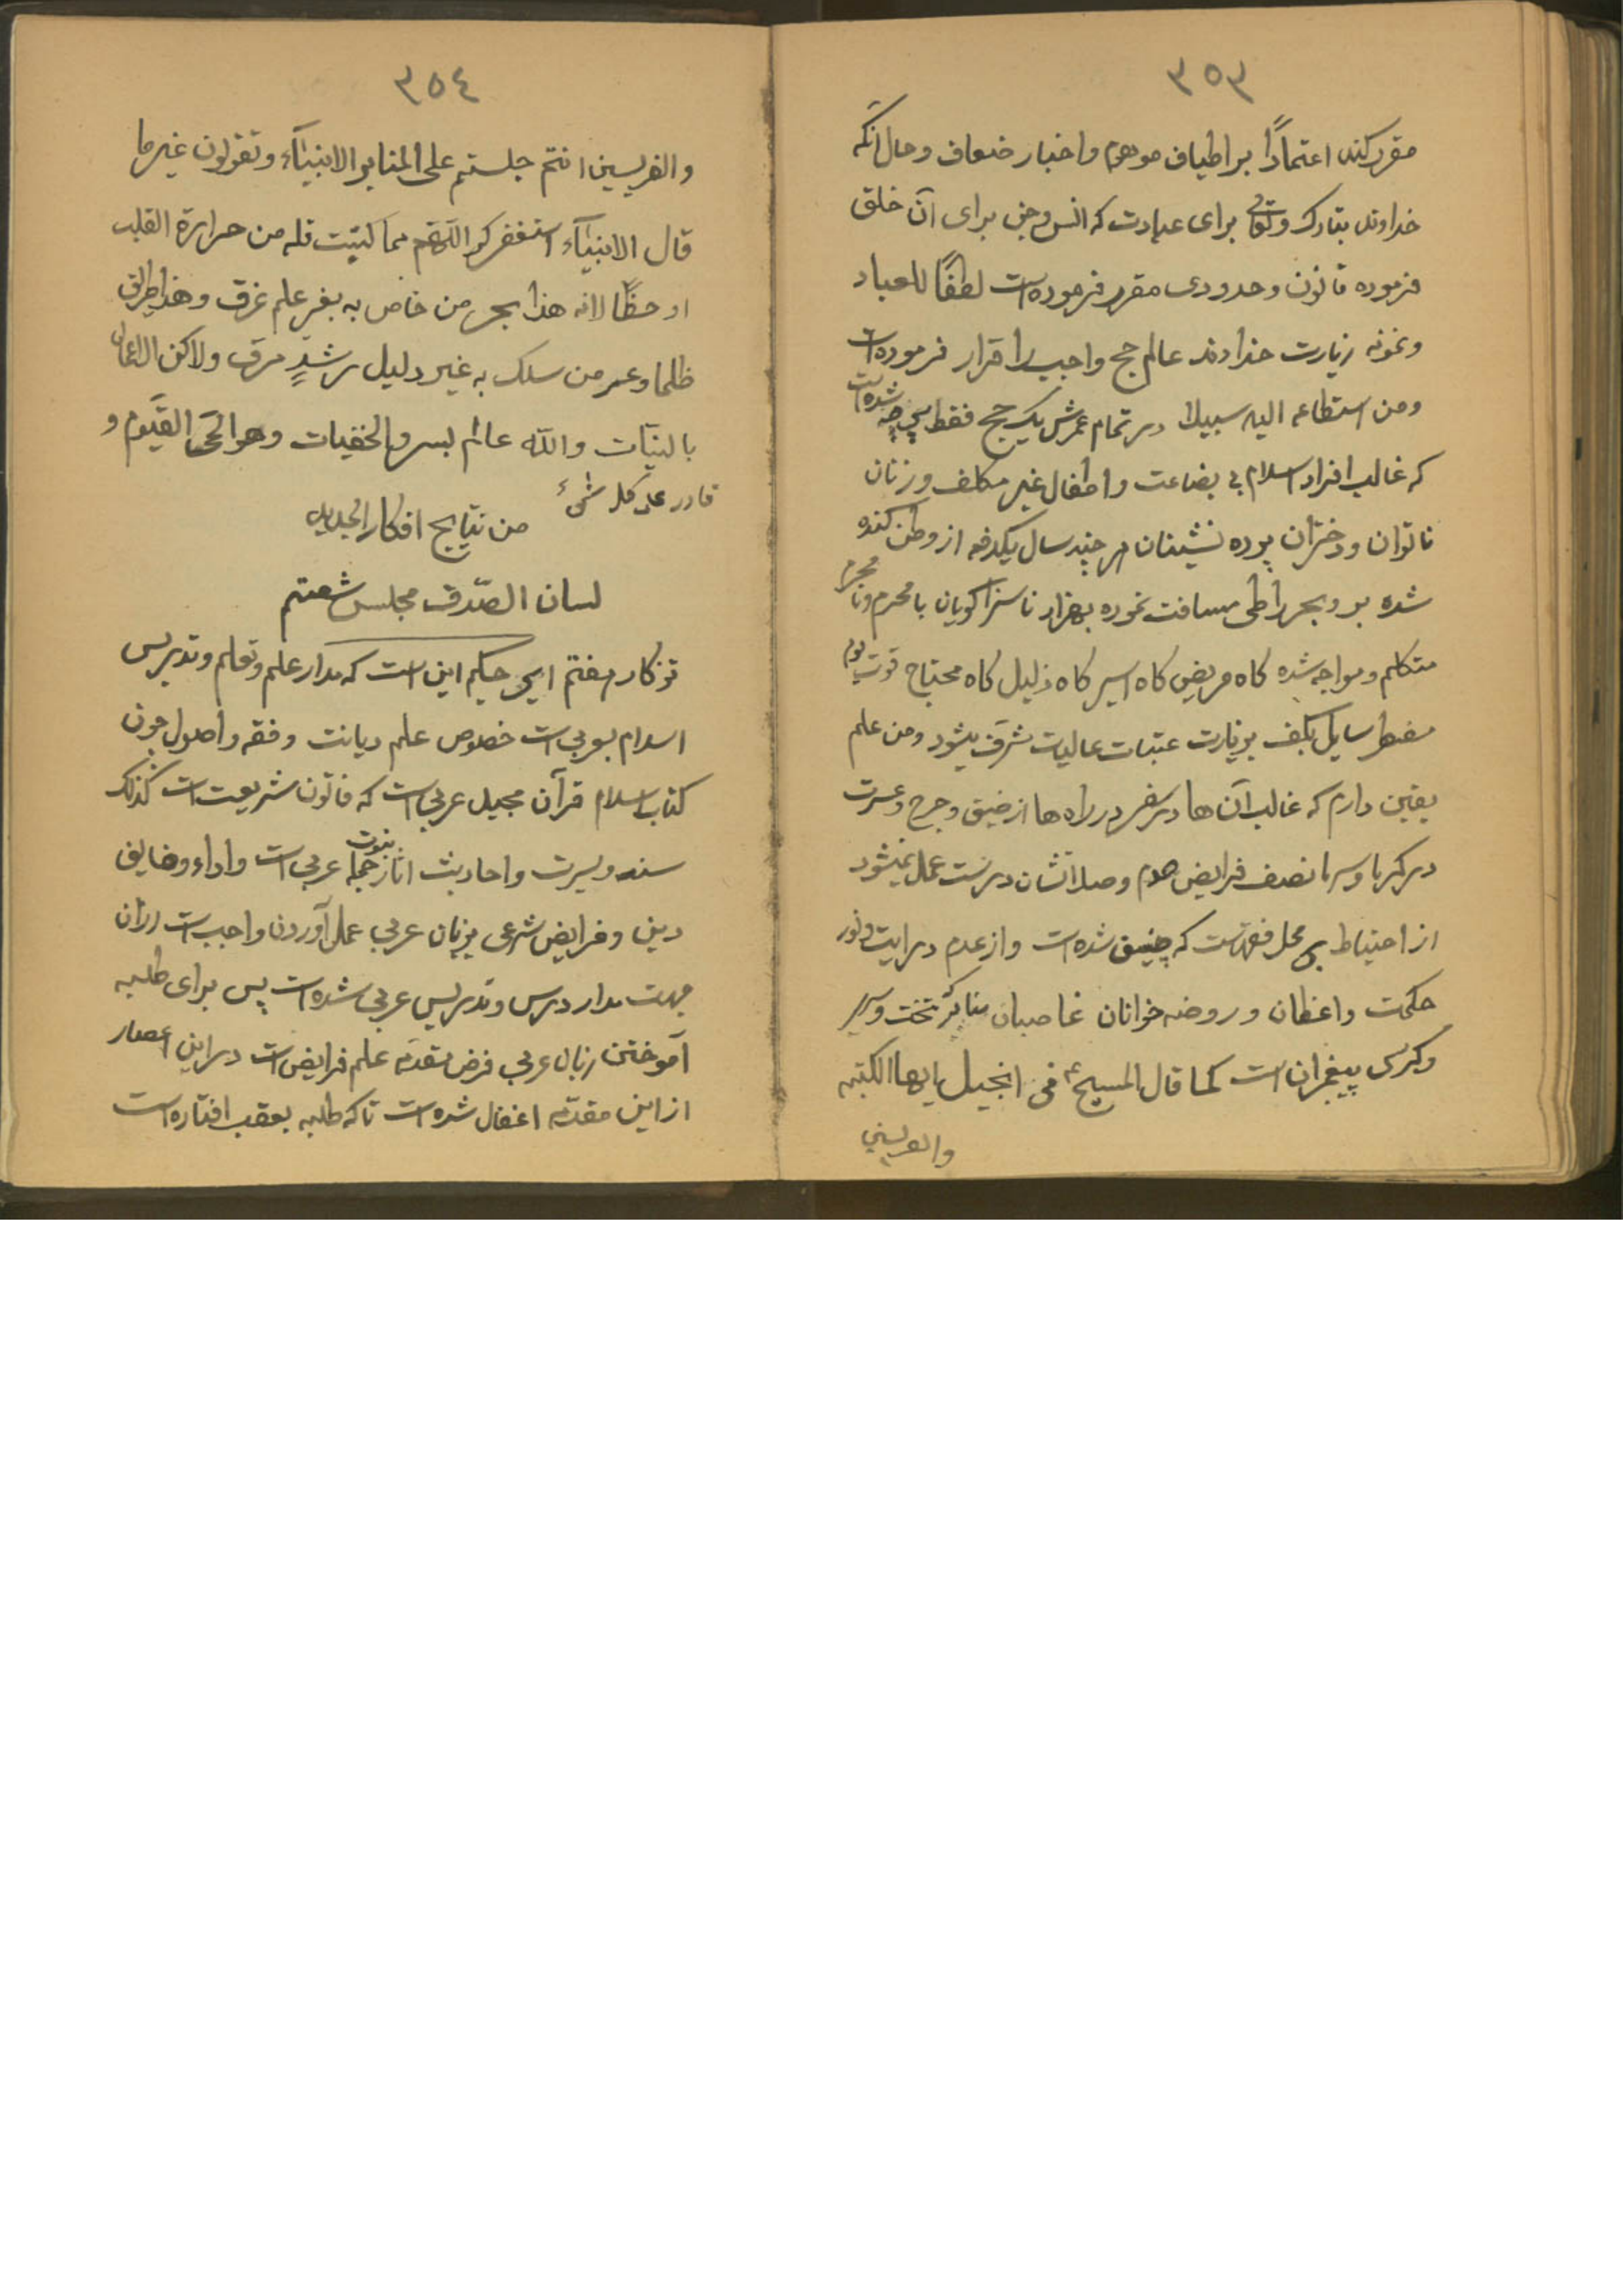 ٣٥٣
مقرر کند اعتماداً بر اطیاف موهوم واخبار ضعاف وحال آنکه
خداوند تبارک وتعالی برای عبادت که انس وجن برای آن خلق
فرموده قانون وحدودی مقرر فرموده است لطفاً للعباد
ونمونه زیارت خداوند عالم حج واجب را قرار فرموده است
ومن استطاعه الیه سبیلا در تمام عمرش یک حج فقط شده است
که غالب افراد اسلام بی بضاعت واطفال غیر مکلف وزنان
ناتوان ودختران پرده نشینان هر چند سال یکدفعه از وطن کنده
شده بر وبحر را طی مسافت نموده بهزار ناسزا کویان با محرم ونامحرم
متکلم ومواجه شده کاه مریض کاه اسیر کاه ذلیل کاه محتاج قوت یوم
مضطر سایل بکف بزیارت عتبات عالیات مشرف میشود ومن علم
یقین دارم که غالب آن ها در سفر در راه ها از ضیق وحرج وعسرت
در کرما وسرما نصف فرایض صوم وصلاتشان درست عمل نمیشود
از احتیاط بی محل فقهاست که چنین شده است واز عدم درایت ونور
حکمت واعظان وروضه خوانان غاصبان منابر تخت وسریر
وکرسی پیغمبران است کما قال المسیح ع فی انجیل ایها الکتبه
والفریسین
٣٥٤
والفریسین انتم جلستم علی المنابر الانبیآء وتقولون غیر ما
قال الانبیآء استغفرک اللهم مما کتبت قله من حرارة القلب
او حظاً لانه هذا بحر من خاض به بغیر علم غرق وهذا طریق
ظلما وعر من سلک به غیر دلیل رشدٍ مرق ولاکن الاعمال
بالنیّات والله عالم بسر والخفیات وهو الحی القیّوم و
قادر علی کل شیء
من نتایج افکار الجدید
لسان الصّدق مجلس شصتم
تذکار هفتم ای حکیم این است که مدار علم وتعلم وتدریس
اسلام بعربی است خصوص علم دیانت وفقه واصول چون
کتاب اسلام قرآن مجید عربی است که قانون شریعت است کذلک
سنه وسیرت واحادیث آثار نبوت جمله عربی است واداء وضایف
دین وفرایض شرعی بزبان عربی عمل آوردن واجب است ازان
جهت مدار درس وتدریس عربی شده است پس برای طلبه
آموختن زبان عربی فرض مقدمه علم فرایض است در این اعصار
از این مقدمه اغفال شده است تا که طلبه بعقب افتاده است